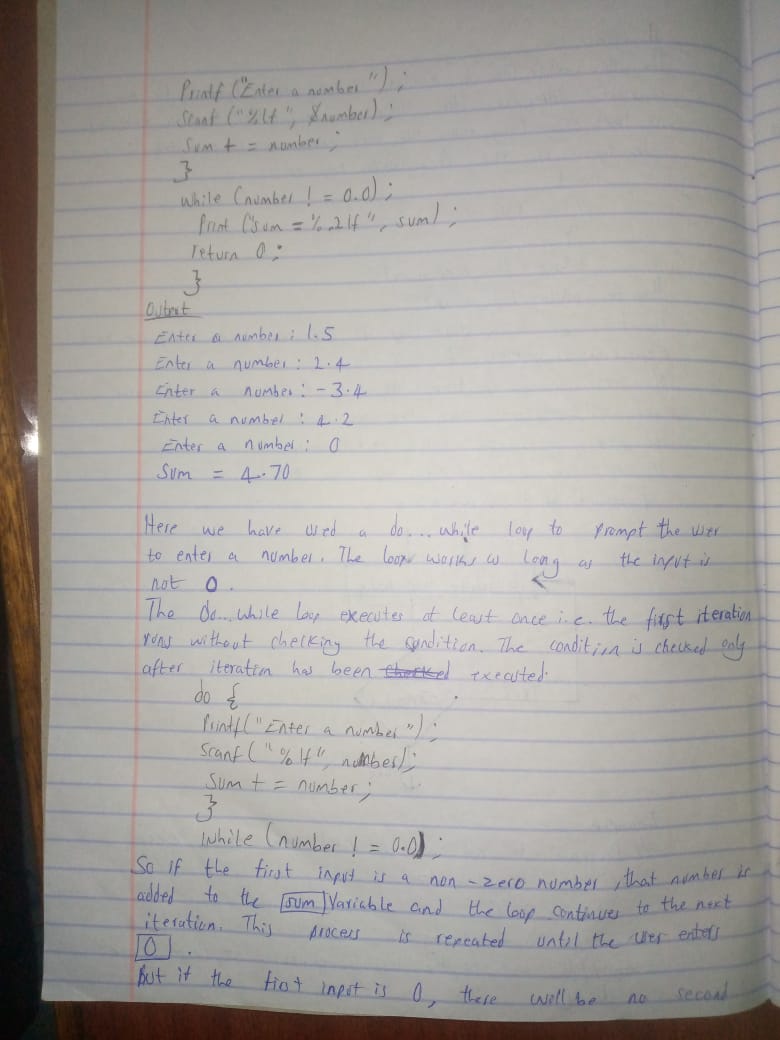 Printf ("Enter a number ");
Scanf ("%lf", &number);
Sum + = number;
}
while (number ! = 0.0);
Print ("Sum = %.2lf", sum);
return 0;
}
Output
Enter a number : 1.5
Enter a number : 2.4
Enter a number : -3.4
Enter a number : 4.2
Enter a number : 0
Sum = 4.70
Here we have used a do... while loop to prompt the user
to enter a number. The loop works as long as the input is
not 0.
The do... while loop executes at least once i.e. the first iteration
runs without checking the condition. The condition is checked only
after iteration has been checked executed.
do {
Printf("Enter a number");
Scanf ("%lf", number);
Sum + = number;
}
While (number ! = 0.0);
So if the first input is a non-zero number, that number is
added to the sum Variable and the loop continues to the next
iteration. This process is repeated until the user enters
0.
But if the first input is 0, there will be no second